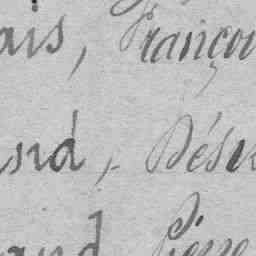 ais, Françoi
and, Dés
and Pierre